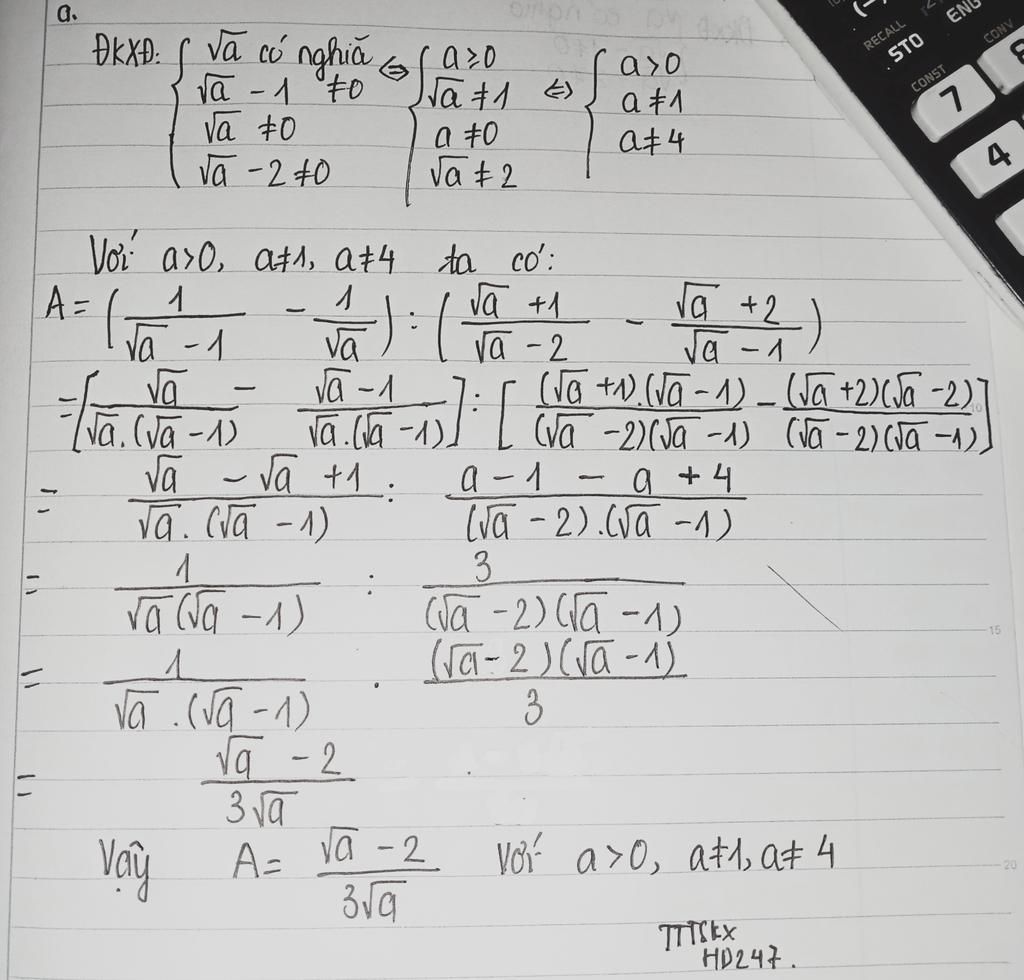 a.
ĐKXĐ: { √a có nghĩa ⇔ { a ≥ 0 ⇔ { a > 0
√a - 1 ≠ 0 √a ≠ 1 a ≠ 1
√a ≠ 0 a ≠ 0 a ≠ 4
√a - 2 ≠ 0 √a ≠ 2
Với a > 0, a ≠ 1, a ≠ 4 ta có:
A = (1/(√a - 1) - 1/√a) : ((√a + 1)/(√a - 2) - (√a + 2)/(√a - 1))
= [√a/(√a.(√a - 1)) - (√a - 1)/(√a.(√a - 1))] : [(√a + 1).(√a - 1)/((√a - 2)(√a - 1)) - (√a + 2)(√a - 2)/((√a - 2)(√a - 1))]
= (√a - √a + 1)/(√a.(√a - 1)) : (a - 1 - a + 4)/((√a - 2).(√a - 1))
= 1/(√a(√a - 1)) : 3/((√a - 2)(√a - 1))
= 1/(√a.(√a - 1)) . (√a - 2)(√a - 1)/3
= (√a - 2)/(3√a)
Vậy A = (√a - 2)/(3√a) với a > 0, a ≠ 1, a ≠ 4
HD247.
RECALL
STO
ENG
CONST
CONV
(-)
7
8
4
10
15
20